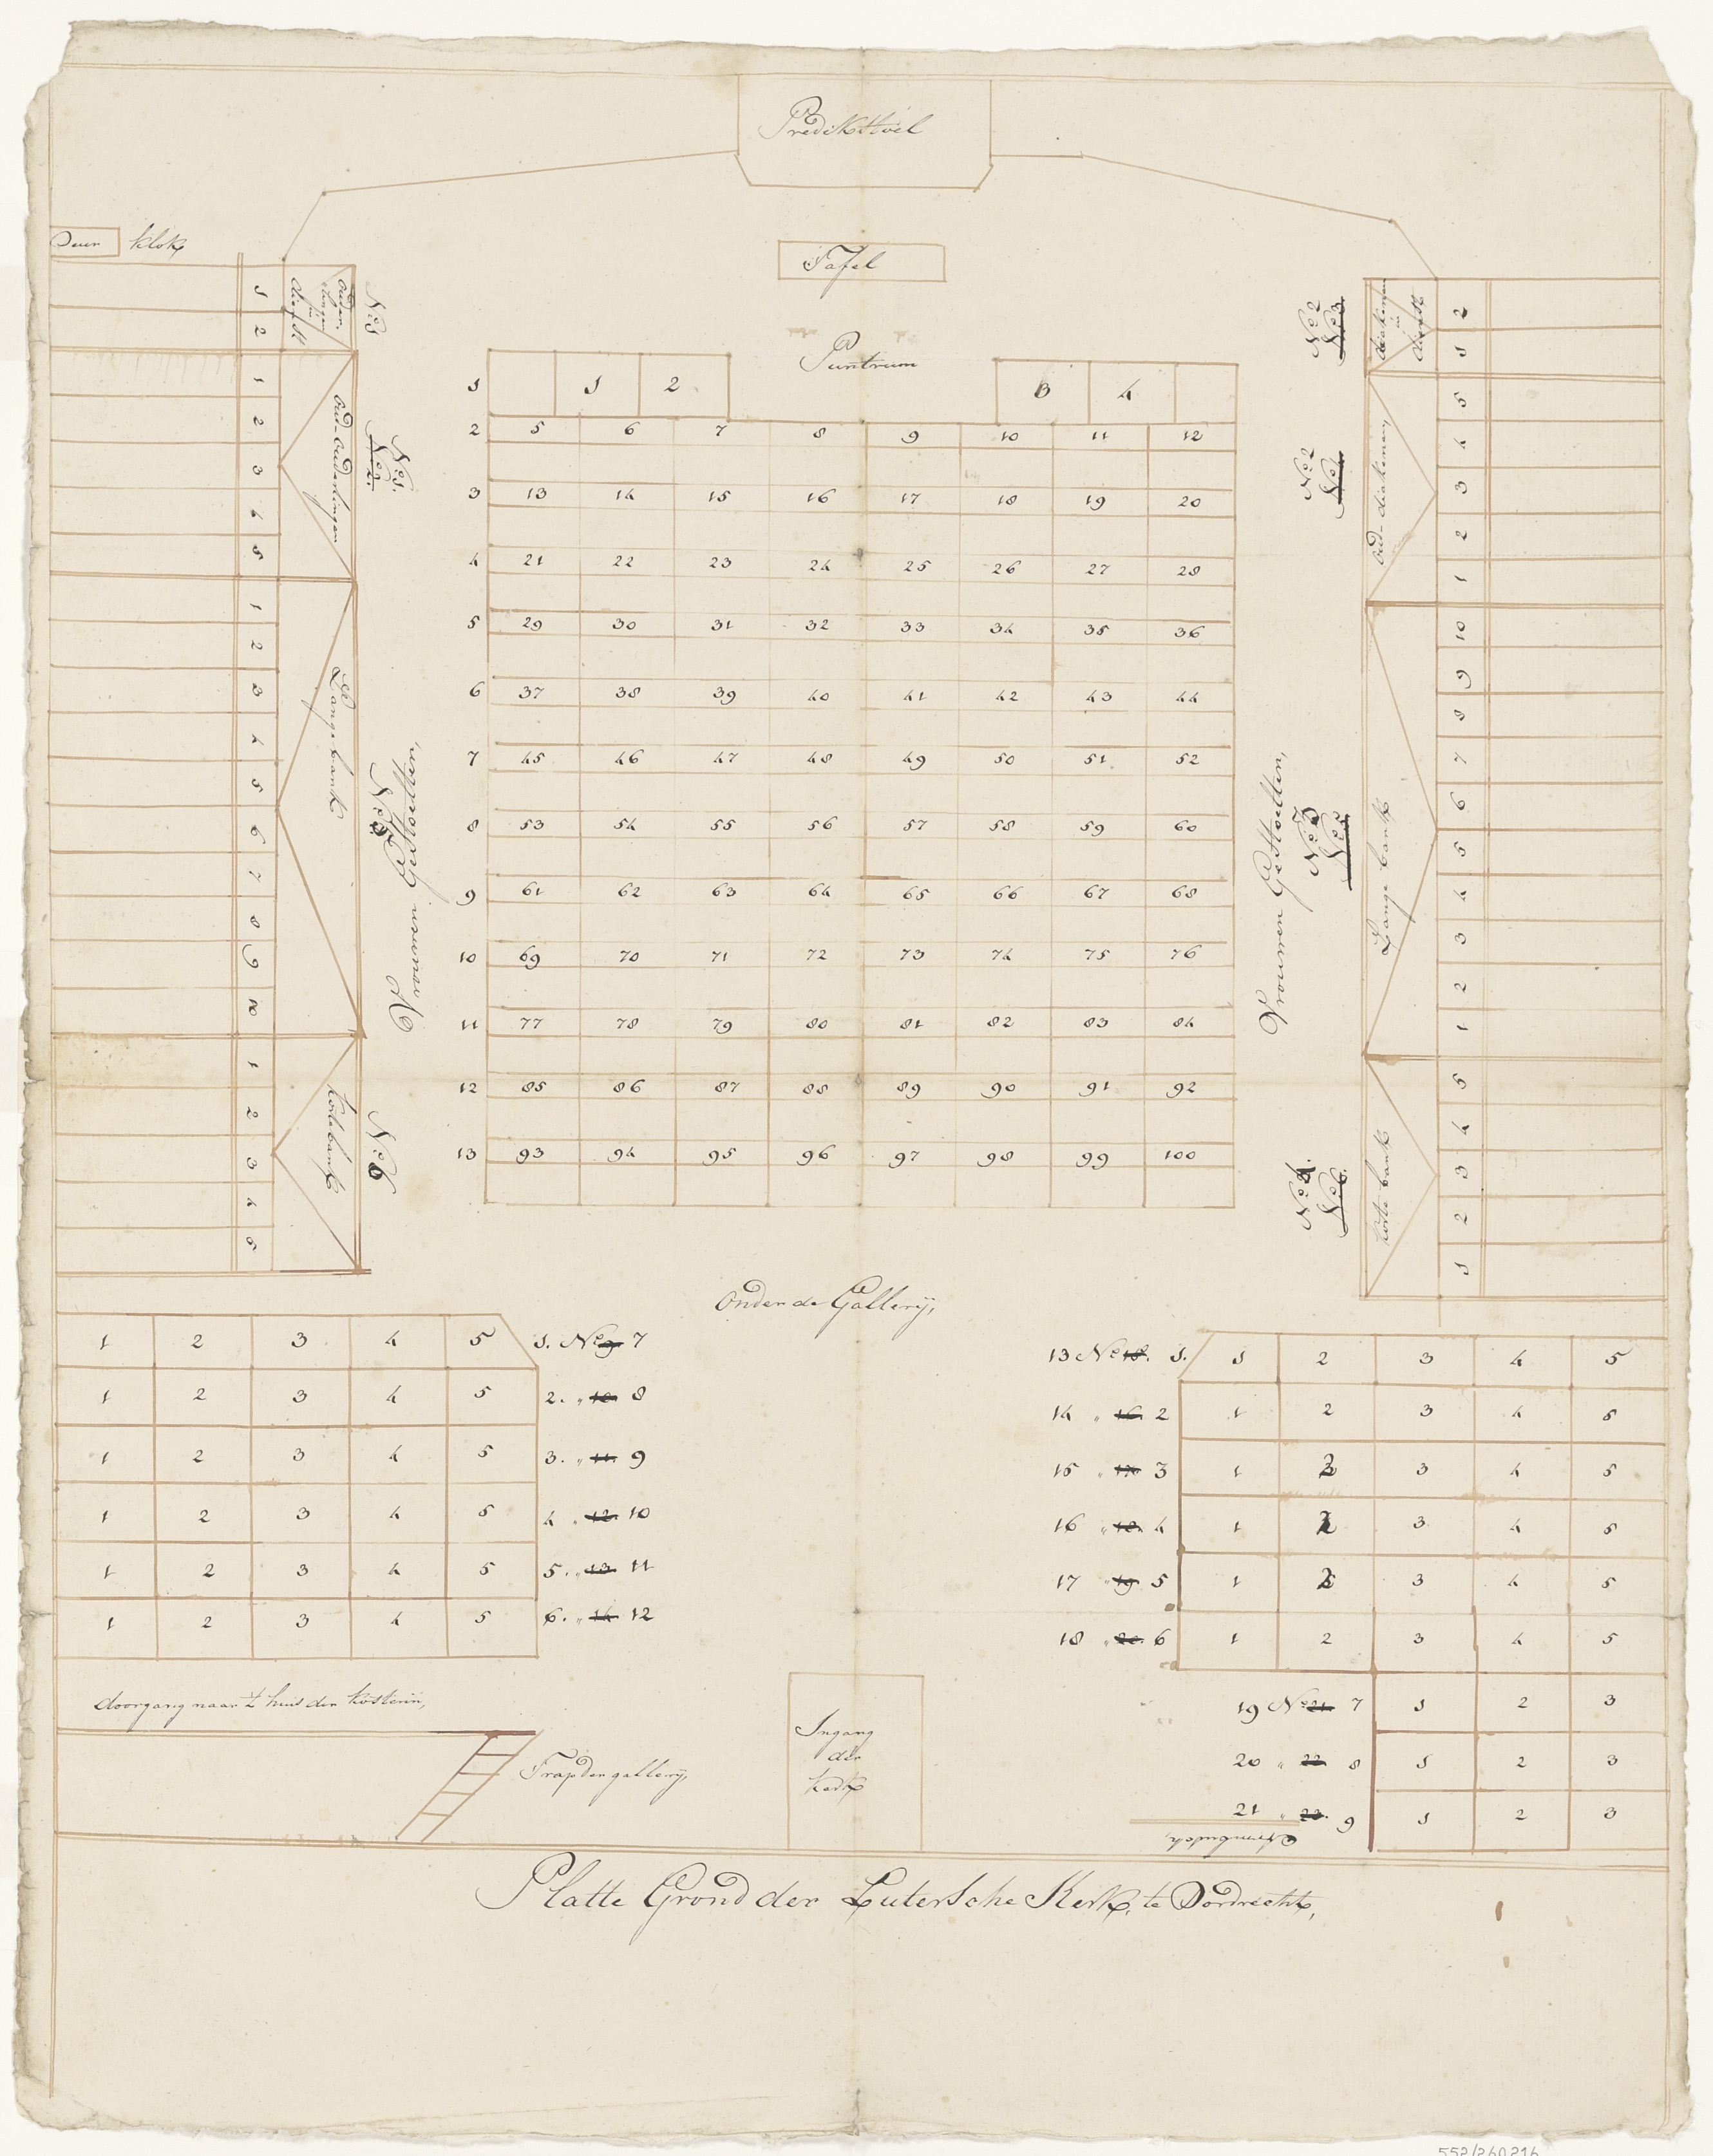 Predikstoel
Deur klok
Tafel
Puntrum
Ouder-
lingen
in
dienst
1
2
No 1
Oud-Ouderlingen
1
2
3
4
5
No 1.
No 2.
Lange bank
1
2
3
4
5
6
7
8
9
10
No 5
Vrouwen Gestoelten,
korte bank
1
2
3
4
5
No 6
1 1 2 3 4
2 5 6 7 8 9 10 11 12
3 13 14 15 16 17 18 19 20
4 21 22 23 24 25 26 27 28
5 29 30 31 32 33 34 35 36
6 37 38 39 40 41 42 43 44
7 45 46 47 48 49 50 51 52
8 53 54 55 56 57 58 59 60
9 61 62 63 64 65 66 67 68
10 69 70 71 72 73 74 75 76
11 77 78 79 80 81 82 83 84
12 85 86 87 88 89 90 91 92
13 93 94 95 96 97 98 99 100
No 2
No 3
diakenen
in
dienst
2
1
No 2
No 4
oud-diakenen
5
4
3
2
1
Vrouwen Gestoelten,
No 3
No 5
Lange bank
10
9
8
7
6
5
4
3
2
1
No 4.
No 6.
korte bank
5
4
3
2
1
Onder de Gallerij,
1 2 3 4 5 1. No 9 7
1 2 3 4 5 2. " 10. 8
1 2 3 4 5 3. " 11. 9
1 2 3 4 5 4 " 12. 10
1 2 3 4 5 5. " 13. 11
1 2 3 4 5 6. " 14. 12
13 No 15. 1. 1 2 3 4 5
14 " 16. 2 1 2 3 4 5
15 " 17. 3 1 2 3 4 5
16 " 18. 4 1 2 3 4 5
17 " 19. 5 1 2 3 4 5
18 " 20. 6 1 2 3 4 5
19 No 21. 7 1 2 3
20 " 22. 8 1 2 3
21 " 23. 9 1 2 3
doorgang naar 't huis der kosterin,
Trap der gallerij,
Ingang
der
kerk
Platte Grond der Luthersche Kerk, te Dordrecht,
552/260216